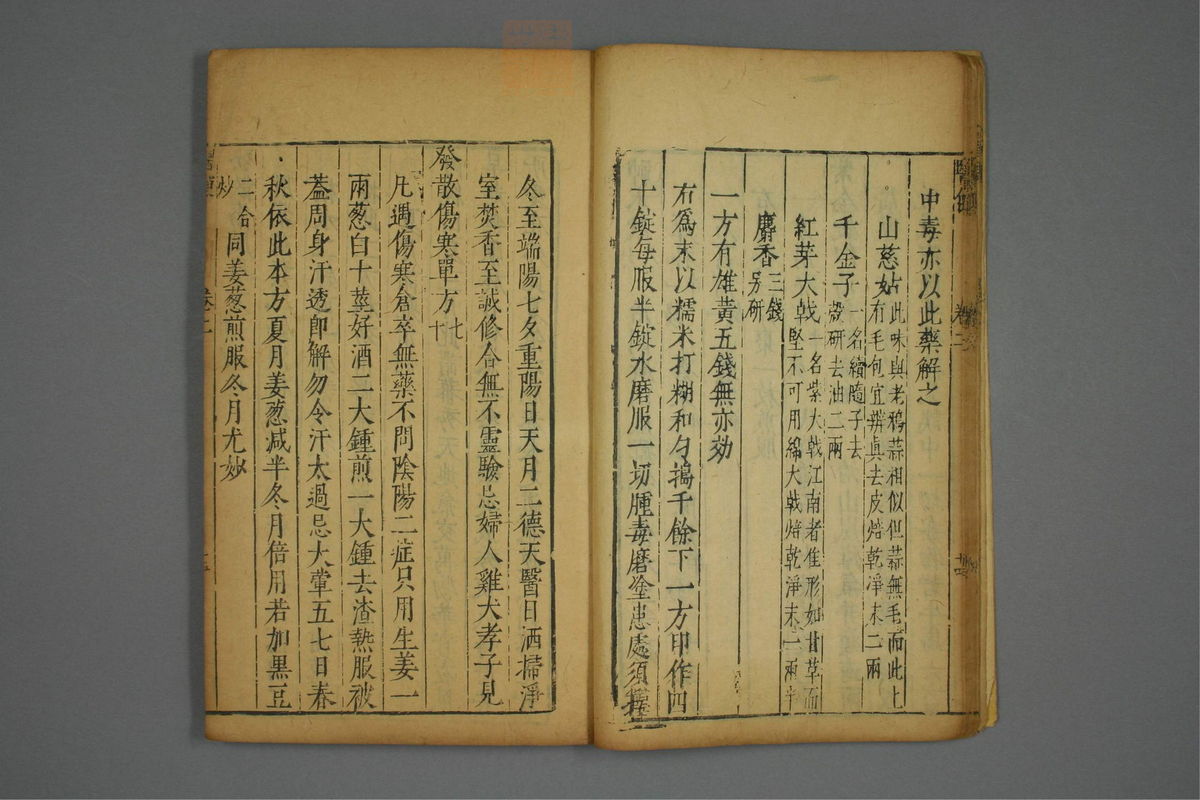 中毒亦以此藥解之
山慈姑此味與老鴉蒜相似但蒜無毛而此上
有毛包宜辨真去皮焙乾凈末二兩
千金子一名續隨子去
殼研去油二兩
紅芽大戟一名紫大戟江南者隹形如甘草而
堅不可用綿大戟焙乾淨末一兩半
麝香三錢
另研
一方有雄黃五錢無亦効
右爲末以糯米打糊和勻搗千餘下一方印作四
十錠每服半錠水磨服一切腫毒磨塗患處須擇
冬至端陽七夕重陽日天月二德天醫日洒掃淨
室焚香至誠修合無不靈驗忌婦人雞犬孝子見
發散傷寒單方七
十
凡遇傷寒倉卒無藥不問陰陽二症只用生姜一
兩葱白十莖好酒二大鍾煎一大鍾去渣熱服被
蓋周身汗透即解勿令汗太過忌大葷五七日春
秋依此本方夏月姜葱减半冬月倍用若加黑豆
二合
炒同姜葱煎服冬月尤妙